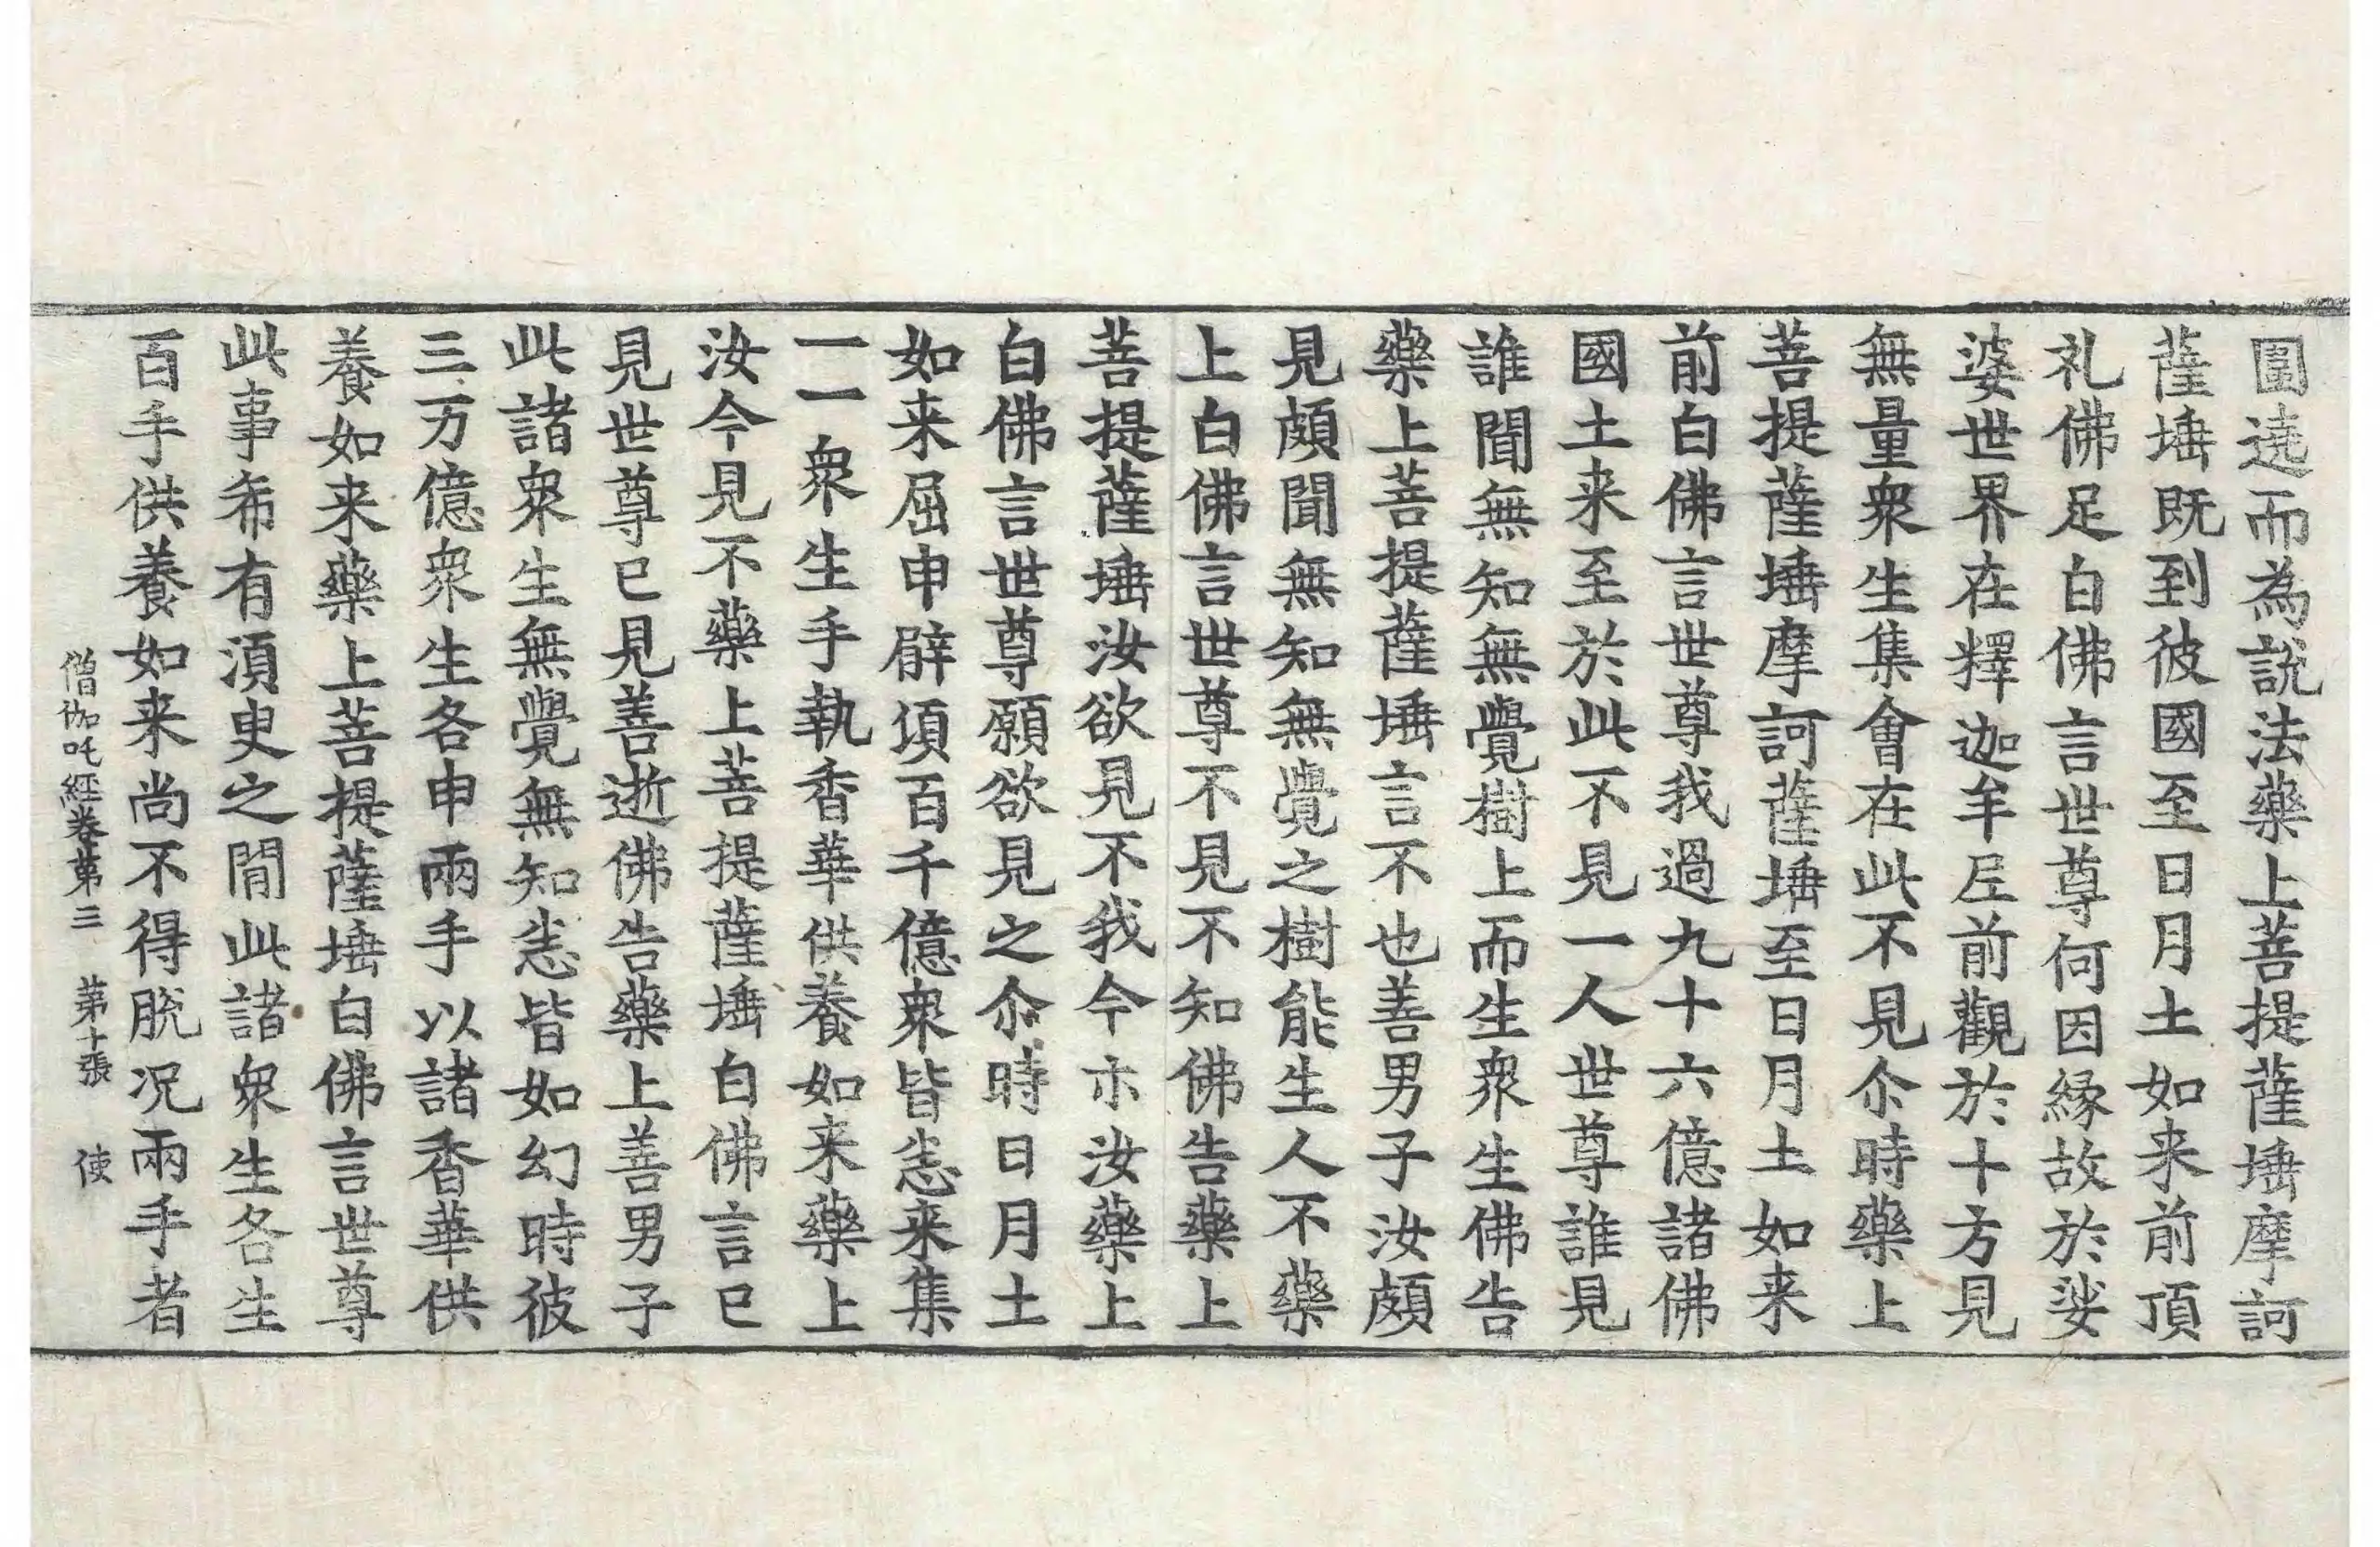 圍遶而為說法藥上菩提薩埵摩訶
薩埵既到彼國至日月土如来前頂
礼佛足白佛言世尊何因緣故於娑
婆世界在釋迦牟尼前觀於十方見
無量衆生集會在此不見尒時藥上
菩提薩埵摩訶薩埵至日月土如来
前白佛言世尊我過九十六億諸佛
國土来至於此不見一人世尊誰見
誰聞無知無覺樹上而生衆生佛告
藥上菩提薩埵言不也善男子汝頗
見頗聞無知無覺之樹能生人不藥
上白佛言世尊不見不知佛告藥上
菩提薩埵汝欲見不我今亦汝藥上
白佛言世尊願欲見之尒時日月土
如来屈申臂項百千億衆皆悉来集
一一衆生手執香華供養如来藥上
汝今見不藥上菩提薩埵白佛言已
見世尊已見善逝佛告藥上善男子
此諸衆生無覺無知悉皆如幻時彼
三万億衆生各申兩手以諸香華供
養如来藥上菩提薩埵白佛言世尊
此事希有湏臾之閒此諸衆生各生
百手供養如来尚不得脫况兩手者
僧伽吒經卷第三 第十張 使